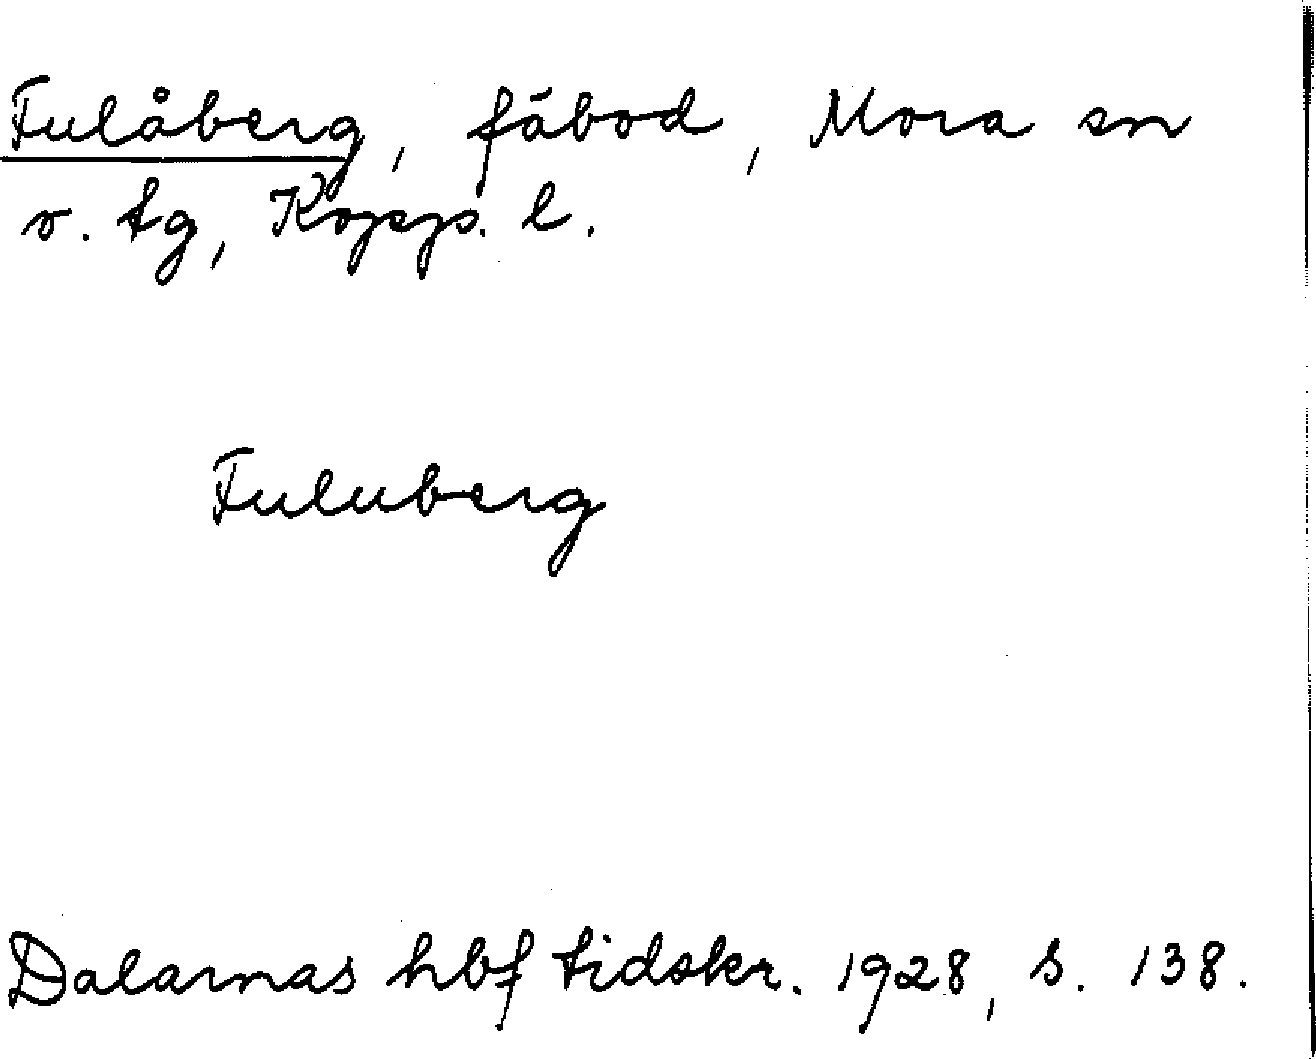 Fulåberg, fäbod, Mora sn
o. tg, Kopp. l.
Fuluberg
Dalarnas hbf tidskr. 1928, s. 138.